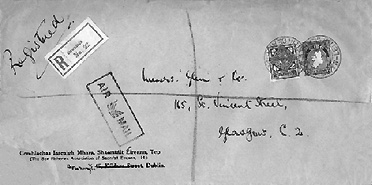 Registered
R
No.
AIR MAIL
Messrs. Glen &
165, St. Vincent Street,
Glasgow, C. 2
Comhlachas Iascaigh Mhara, Shaorstáit Éireann, Teo
(The Sea Fisheries Association of Saorstát Éireann, Ltd.)
Street, Dublin.